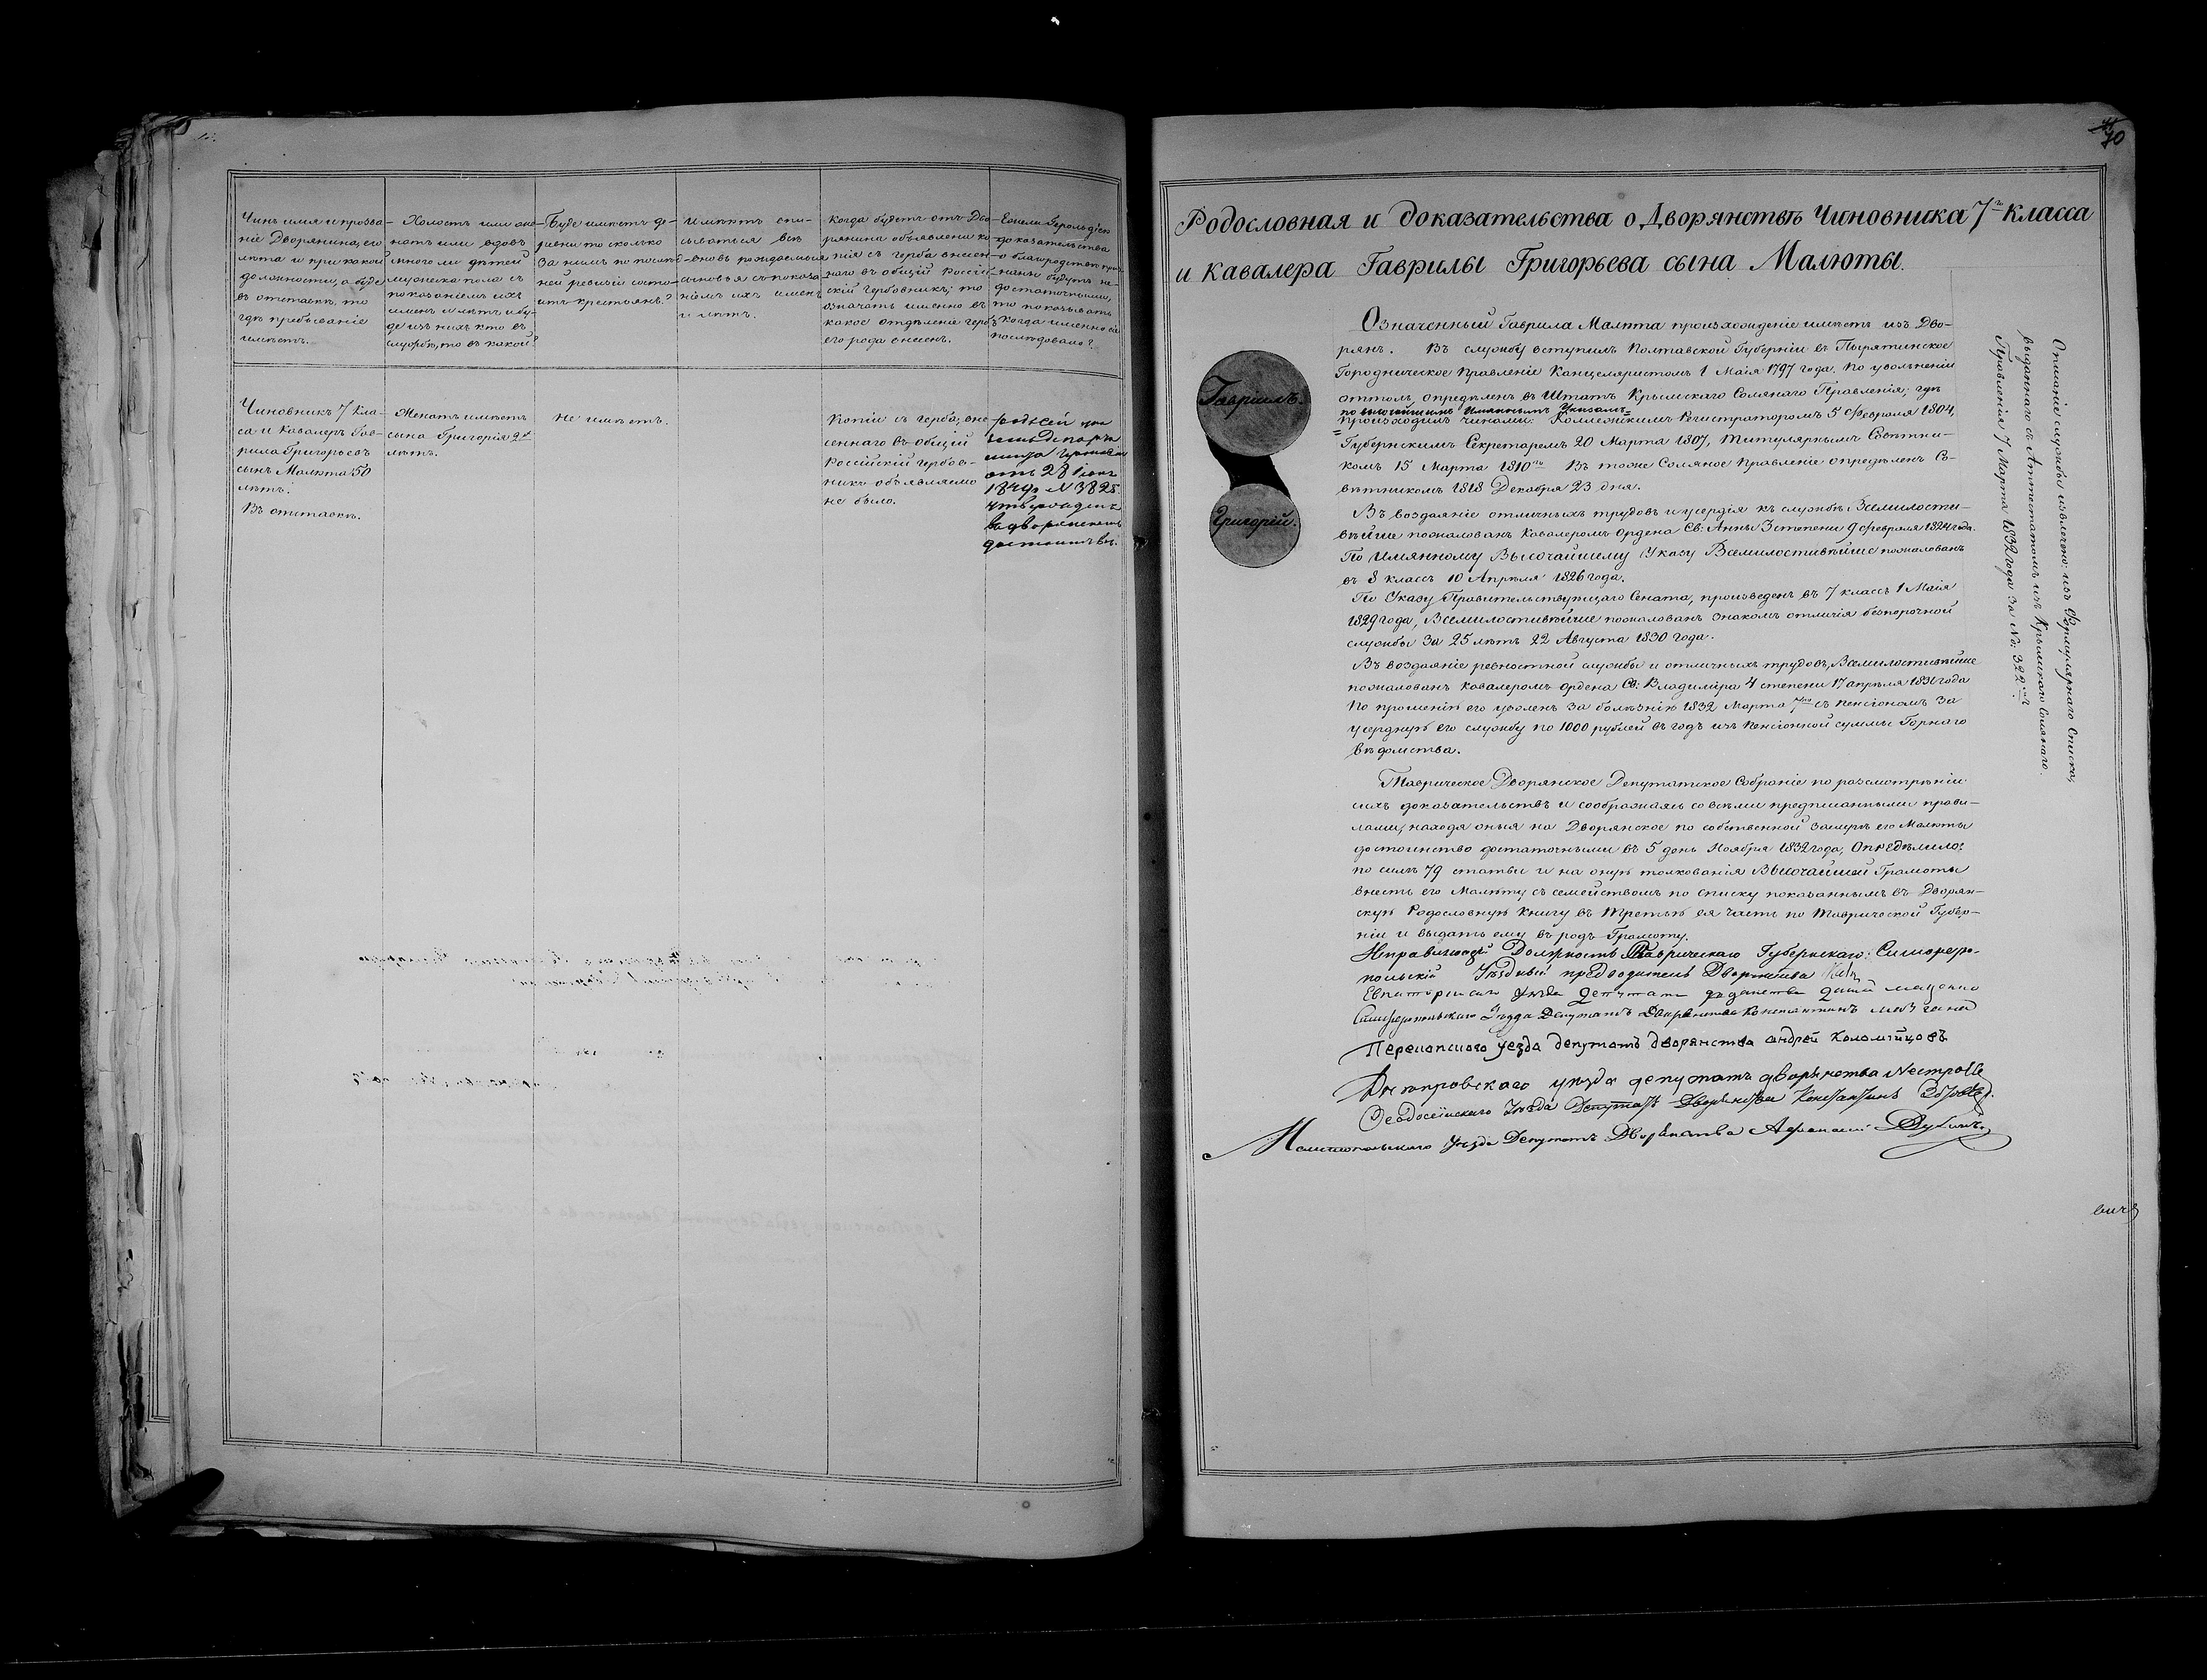 Чинъ имя и прозва-
ніе Дворянина, его
лѣта и при какой
должности, а буде
въ отставкѣ, то
гдѣ пребываніе
имѣетъ.
Холостъ или же-
натъ или вдовъ
много ли дѣтей
мужеска пола съ
показаніемъ ихъ
именъ и лѣтъ и бу-
де изъ нихъ кто въ
службѣ, то въ какой?
Буде имѣетъ де-
ревни то сколько
за нимъ по послѣд-
ней ревизіи состо-
итъ крестьянъ?
Имѣютъ впи-
сываться всѣ
вновь рождаемыя
сыновья съ показа-
ніемъ ихъ именъ
и лѣтъ.
Когда будетъ отъ Дво-
рянина объявлена ко-
пія съ герба внесен-
наго въ общій Россій-
скій гербовникъ; то
означать именно въ
какое отдѣленіе гербъ
его рода внесенъ.
Ежели Герольдіею
доказательства
о благородствѣ
найдены будутъ не
достаточными,
то показывать
когда именно сіе
послѣдовало?
Чиновникъ 7 Кла-
са и Кавалеръ Гав-
рила Григорьевъ
сынъ Малюта 50
лѣтъ.
Въ отставкѣ.
Женатъ имѣетъ
сына Григорія 2х
лѣтъ.
Не имѣетъ.
Копіи съ герба, вне
сеннаго въ общій
Россійскій гербов-
никъ объявляемо
не было.
отъ 28 Іюня
1849 № 3825.
утвержденъ
въ дворянскомъ
достоинствѣ.
70
Родословная и доказательства о Дворянствѣ Чиновника 7го Класса
и Кавалера Гаврилы Григорьева сына Малюты.
Гавріилъ.
Григорій.
Означенный Гаврила Малюта произхожденіе имѣетъ изъ Дво-
рянъ. Въ службу вступилъ Полтавской Губерніи въ Пырятинское
Городническое Правленіе Канцеляристомъ 1 Маія 1797 года. По увольненіи
оттоль, опредѣленъ въ Штатъ Крымскаго Солянаго Правленія; гдѣ
по высочайшимъ Имяннымъ Указамъ
происходилъ чинами: Коллежскимъ Регистраторомъ 5 Февраля 1804,
Губернскимъ Секретаремъ 20 Марта 1807, Титулярнымъ Совѣтни-
комъ 15 Марта 1810го Въ тоже Соляное Правленіе опредѣленъ Со-
вѣтникомъ 1818 Декабря 23 дня.
Въ воздаяніе отличныхъ трудовъ и усердія къ службѣ Всемилости-
вѣйше пожалованъ Кавалеромъ Ордена Св: Анны 3 степени 9 Февраля 1824 года.
По Имянному Высочайшему Указу Всемилостивѣйше пожалованъ
въ 8 классъ 10 Апрѣля 1826 года.
По Указу Правительствующаго Сената, произведенъ въ 7 классъ 1 Маія
1829 года, Всемилостивѣйше пожалованъ знакомъ отличія безпорочной
службы за 25 лѣтъ 22 Августа 1830 года.
Въ воздаяніе ревностной службы и отличныхъ трудовъ, Всемилостивѣйше
пожалованъ Кавалеромъ Ордена Св: Владиміра 4 степени 17 апрѣля 1831 года
По прошенію его уволенъ за болѣзнію 1832 Марта 7го съ пенсіономъ за
усердную его службу по 1000 рублей въ годъ изъ Пенсіонной суммы Горнаго
вѣдомства.
Таврическое Дворянское Депутатское Собраніе по разсмотрѣніи
сихъ доказательствъ и соображаясь со всѣми предписанными прави-
лами, находя оныя на Дворянское по собственной заслугѣ его Малюты
достоинство достаточными въ 5 день Ноября 1832 года, Опредѣлило:
по силѣ 79 статьи и на оную толкованія Высочайшей Грамоты
внесть его Малюту съ семействомъ по списку показаннымъ въ Дворян-
скую Родословную Книгу въ Третью ея часть по Таврической Губер-
ніи и выдать ему въ родъ Грамоту.
Исправляющій Должность Таврическаго Губернскаго: Симферо-
польскій Уѣздный предводитель Дворянства
Евпаторійскаго уѣзда Депутатъ
Симферопольскаго Уѣзда Депутатъ Дворянства Константинъ
Перекопскаго уезда депутатъ дворянства андрей Коломійцовъ
Днепровскаго уѣзда депутатъ дворянства
Феодосійскаго Уѣзда Депутатъ Дворянства Константинъ
Мелитопольскаго Уѣзда Депутатъ Дворянства Афанасій
Описаніе службы извлечено: изъ Формулярнаго Списка,
выданнаго съ Аттестатомъ изъ Крымскаго Солянаго
Правленія 7 Марта 1832 года за №: 322мъ